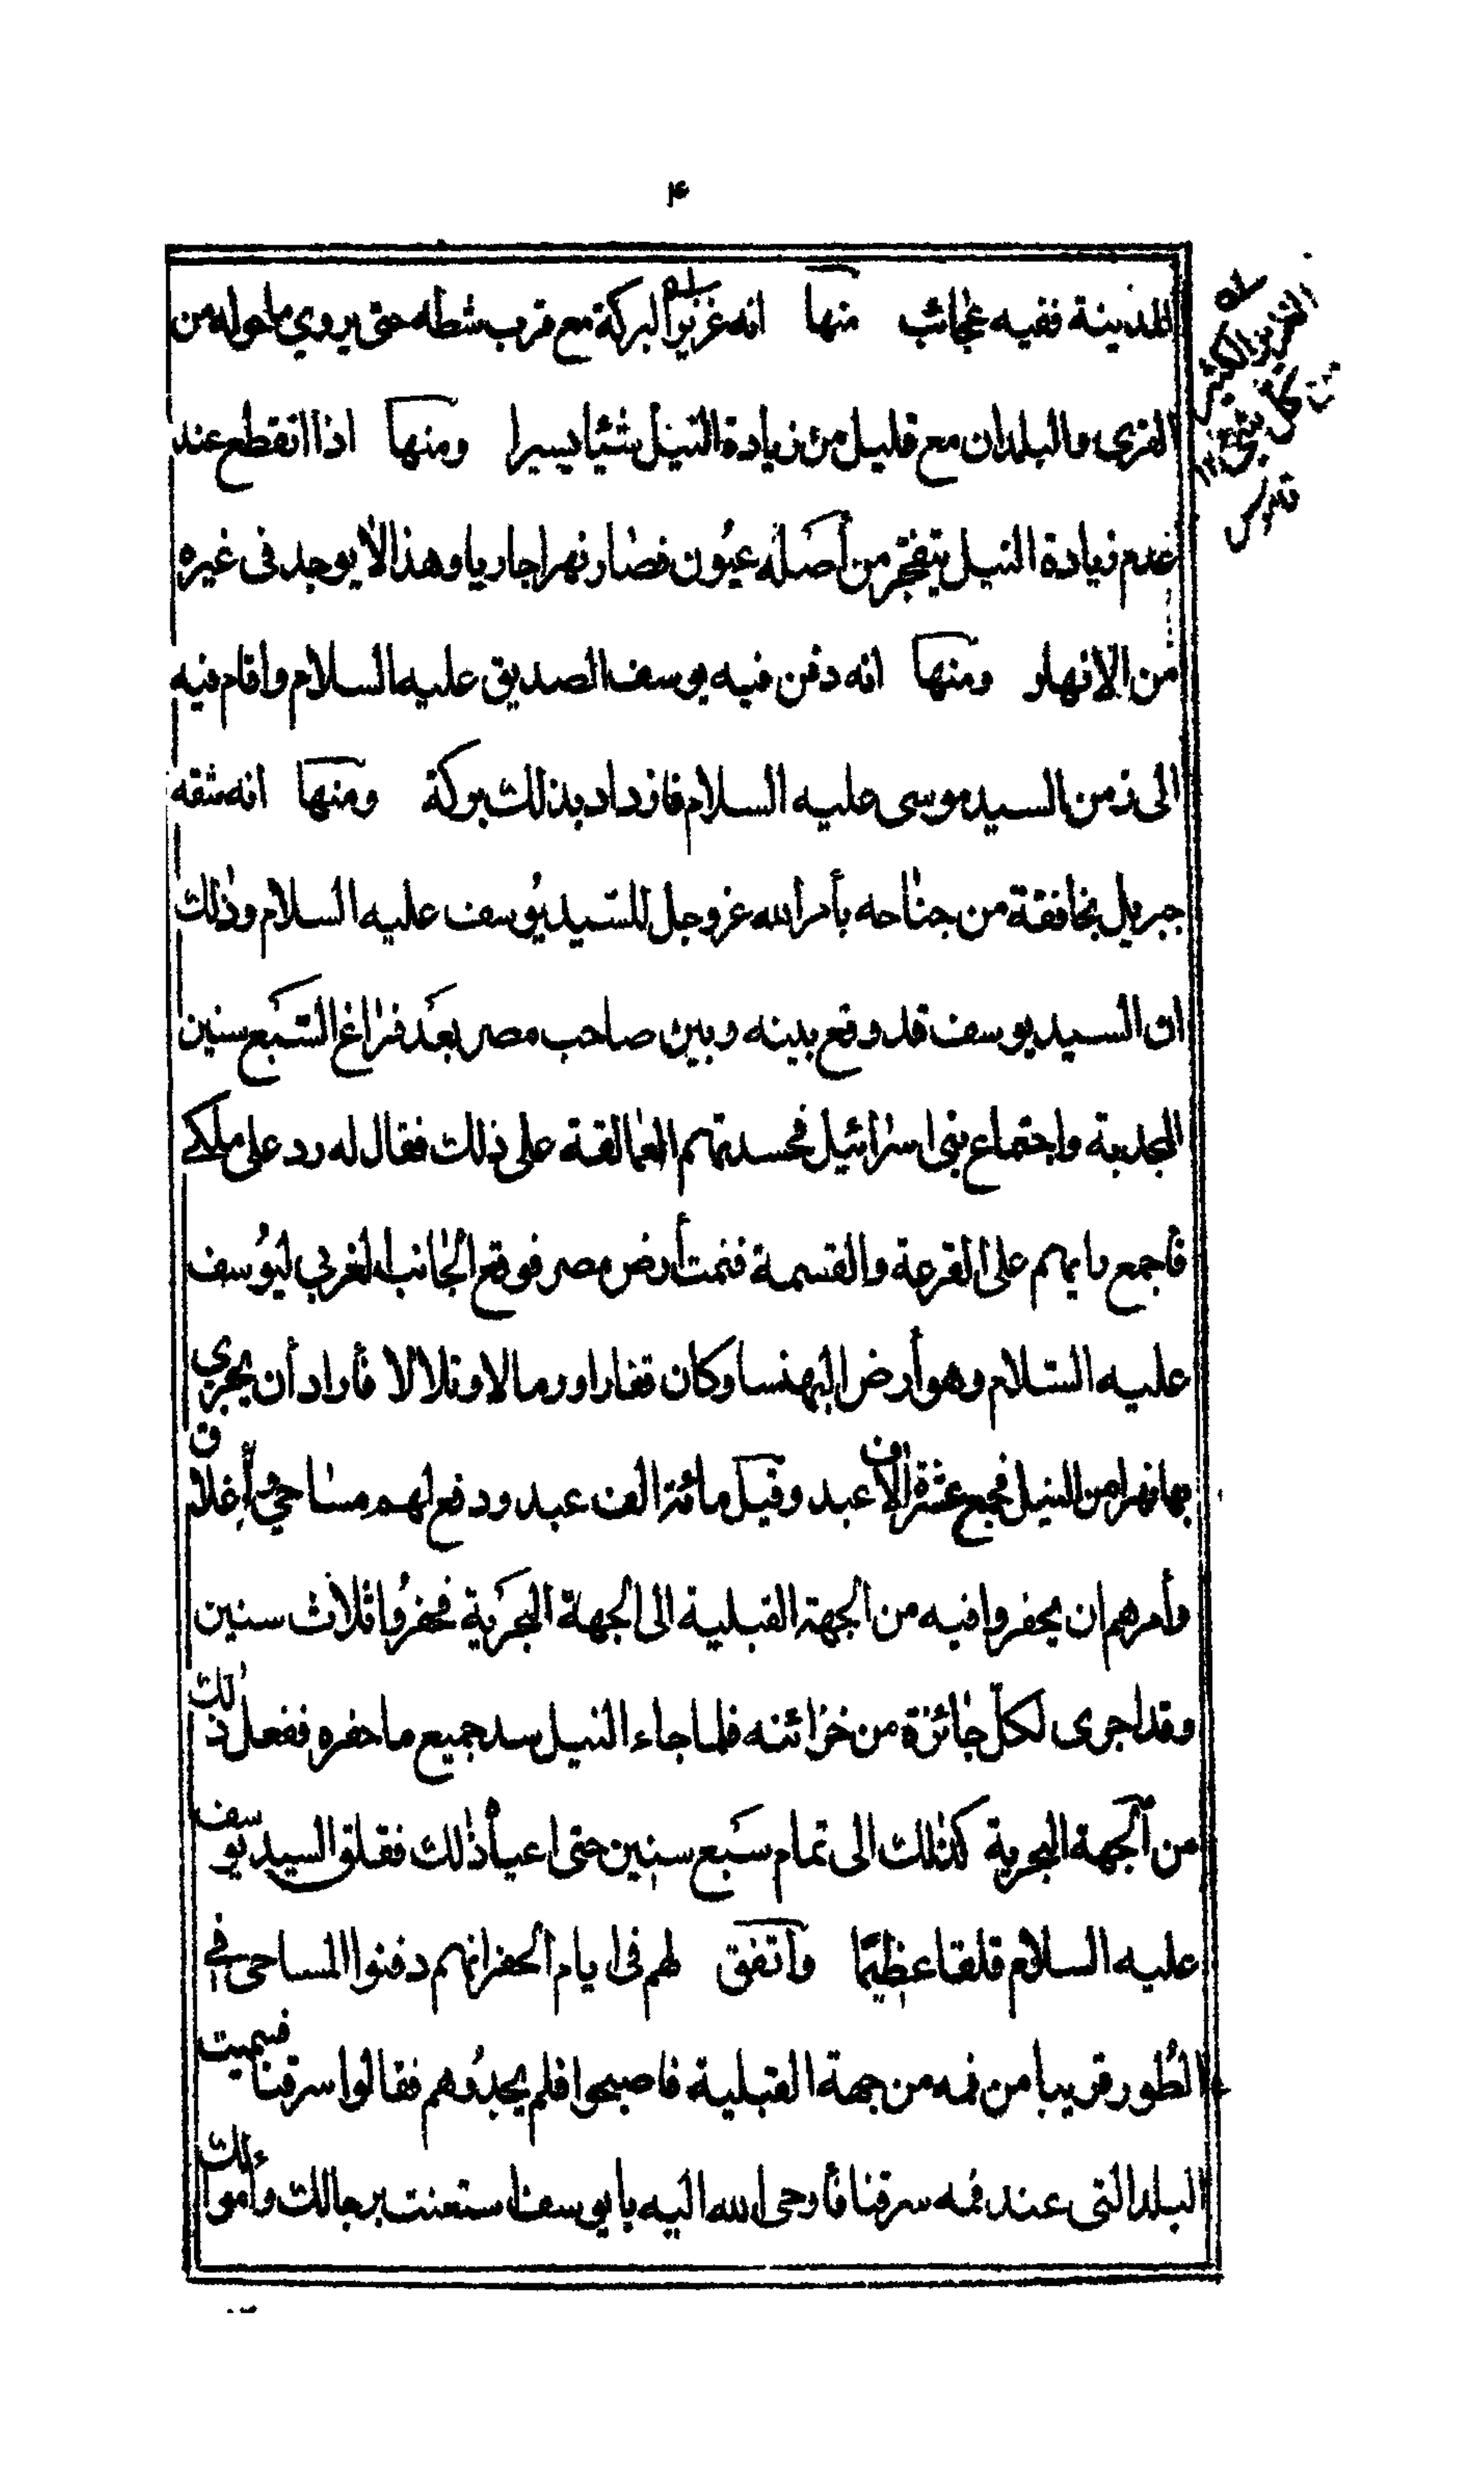 ۴
المدينة ففيه عجائب منها انه غزير البركة مع قرب شطه حتى يروي ما حوله من
القرى والبلدان مع قليل من زيادة النيل شيئا يسيرا ومنها اذا انقطع عند
عدم زيادة النيل يتفجر من أصله عيون فصار نهرا جاريا وهذا لا يوجد فى غيره
من الانهار ومنها انه دفن فيه يوسف الصديق عليه السلام واقام فيه
الى زمن السيد موسى عليه السلام فازداد بذلك بركة ومنها انه شقه
جبريل بخافقة من جناحه بأمر الله عزوجل للسيد يوسف عليه السلام وذلك
ان السيد يوسف قد وقع بينه وبين صاحب مصر بعد فراغ السبع سنين
المجدبة واجتماع بنى اسرائيل فحسدتهم العمالقة على ذلك فقال له رد على ملكى
فأجمع رايهم على القرعة والقسمة فنمت أرض مصر فوقع الجانب الغربي ليوسف
عليه السلام وهو أرض البهنسا وكان قفارا ورمالا وتلالا فأراد أن يجري
بها نهرا من النيل فجمع عشرة الاف عبد وقيل مائة الف عبد ودفع لهم مساحي و أغلاق
وأمرهم ان يحفروا فيه من الجهة القبلية الى الجهة البحرية فحفروا ثلاث سنين
وقد اجرى لكل جائزة من خزائنه فلما جاء النيل سد جميع ما حفره ففعل ذلك
من الجهة البحرية كذلك الى تمام سبع سنين حتى اعياه ذلك فقلق السيد يوسف
عليه السلام قلقا عظيما واتفق لهم فى ايام الحفر انهم دفنوا المساحى فى
الطور قريبا من فمه من جهة القبلية فاصبحوا فلم يجدوهم فقالوا سرقنا فسميت
البلد التى عند فمه سرقنا فأوحى الله اليه يا يوسف استعنت برجالك وأموالك